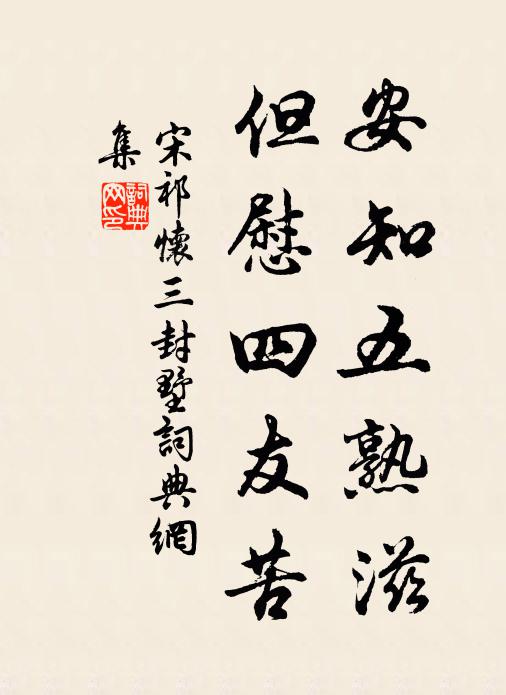 安知五熟滋
但慰四友苦
宋祁懷三封墅詞典網
集
詞典
网印